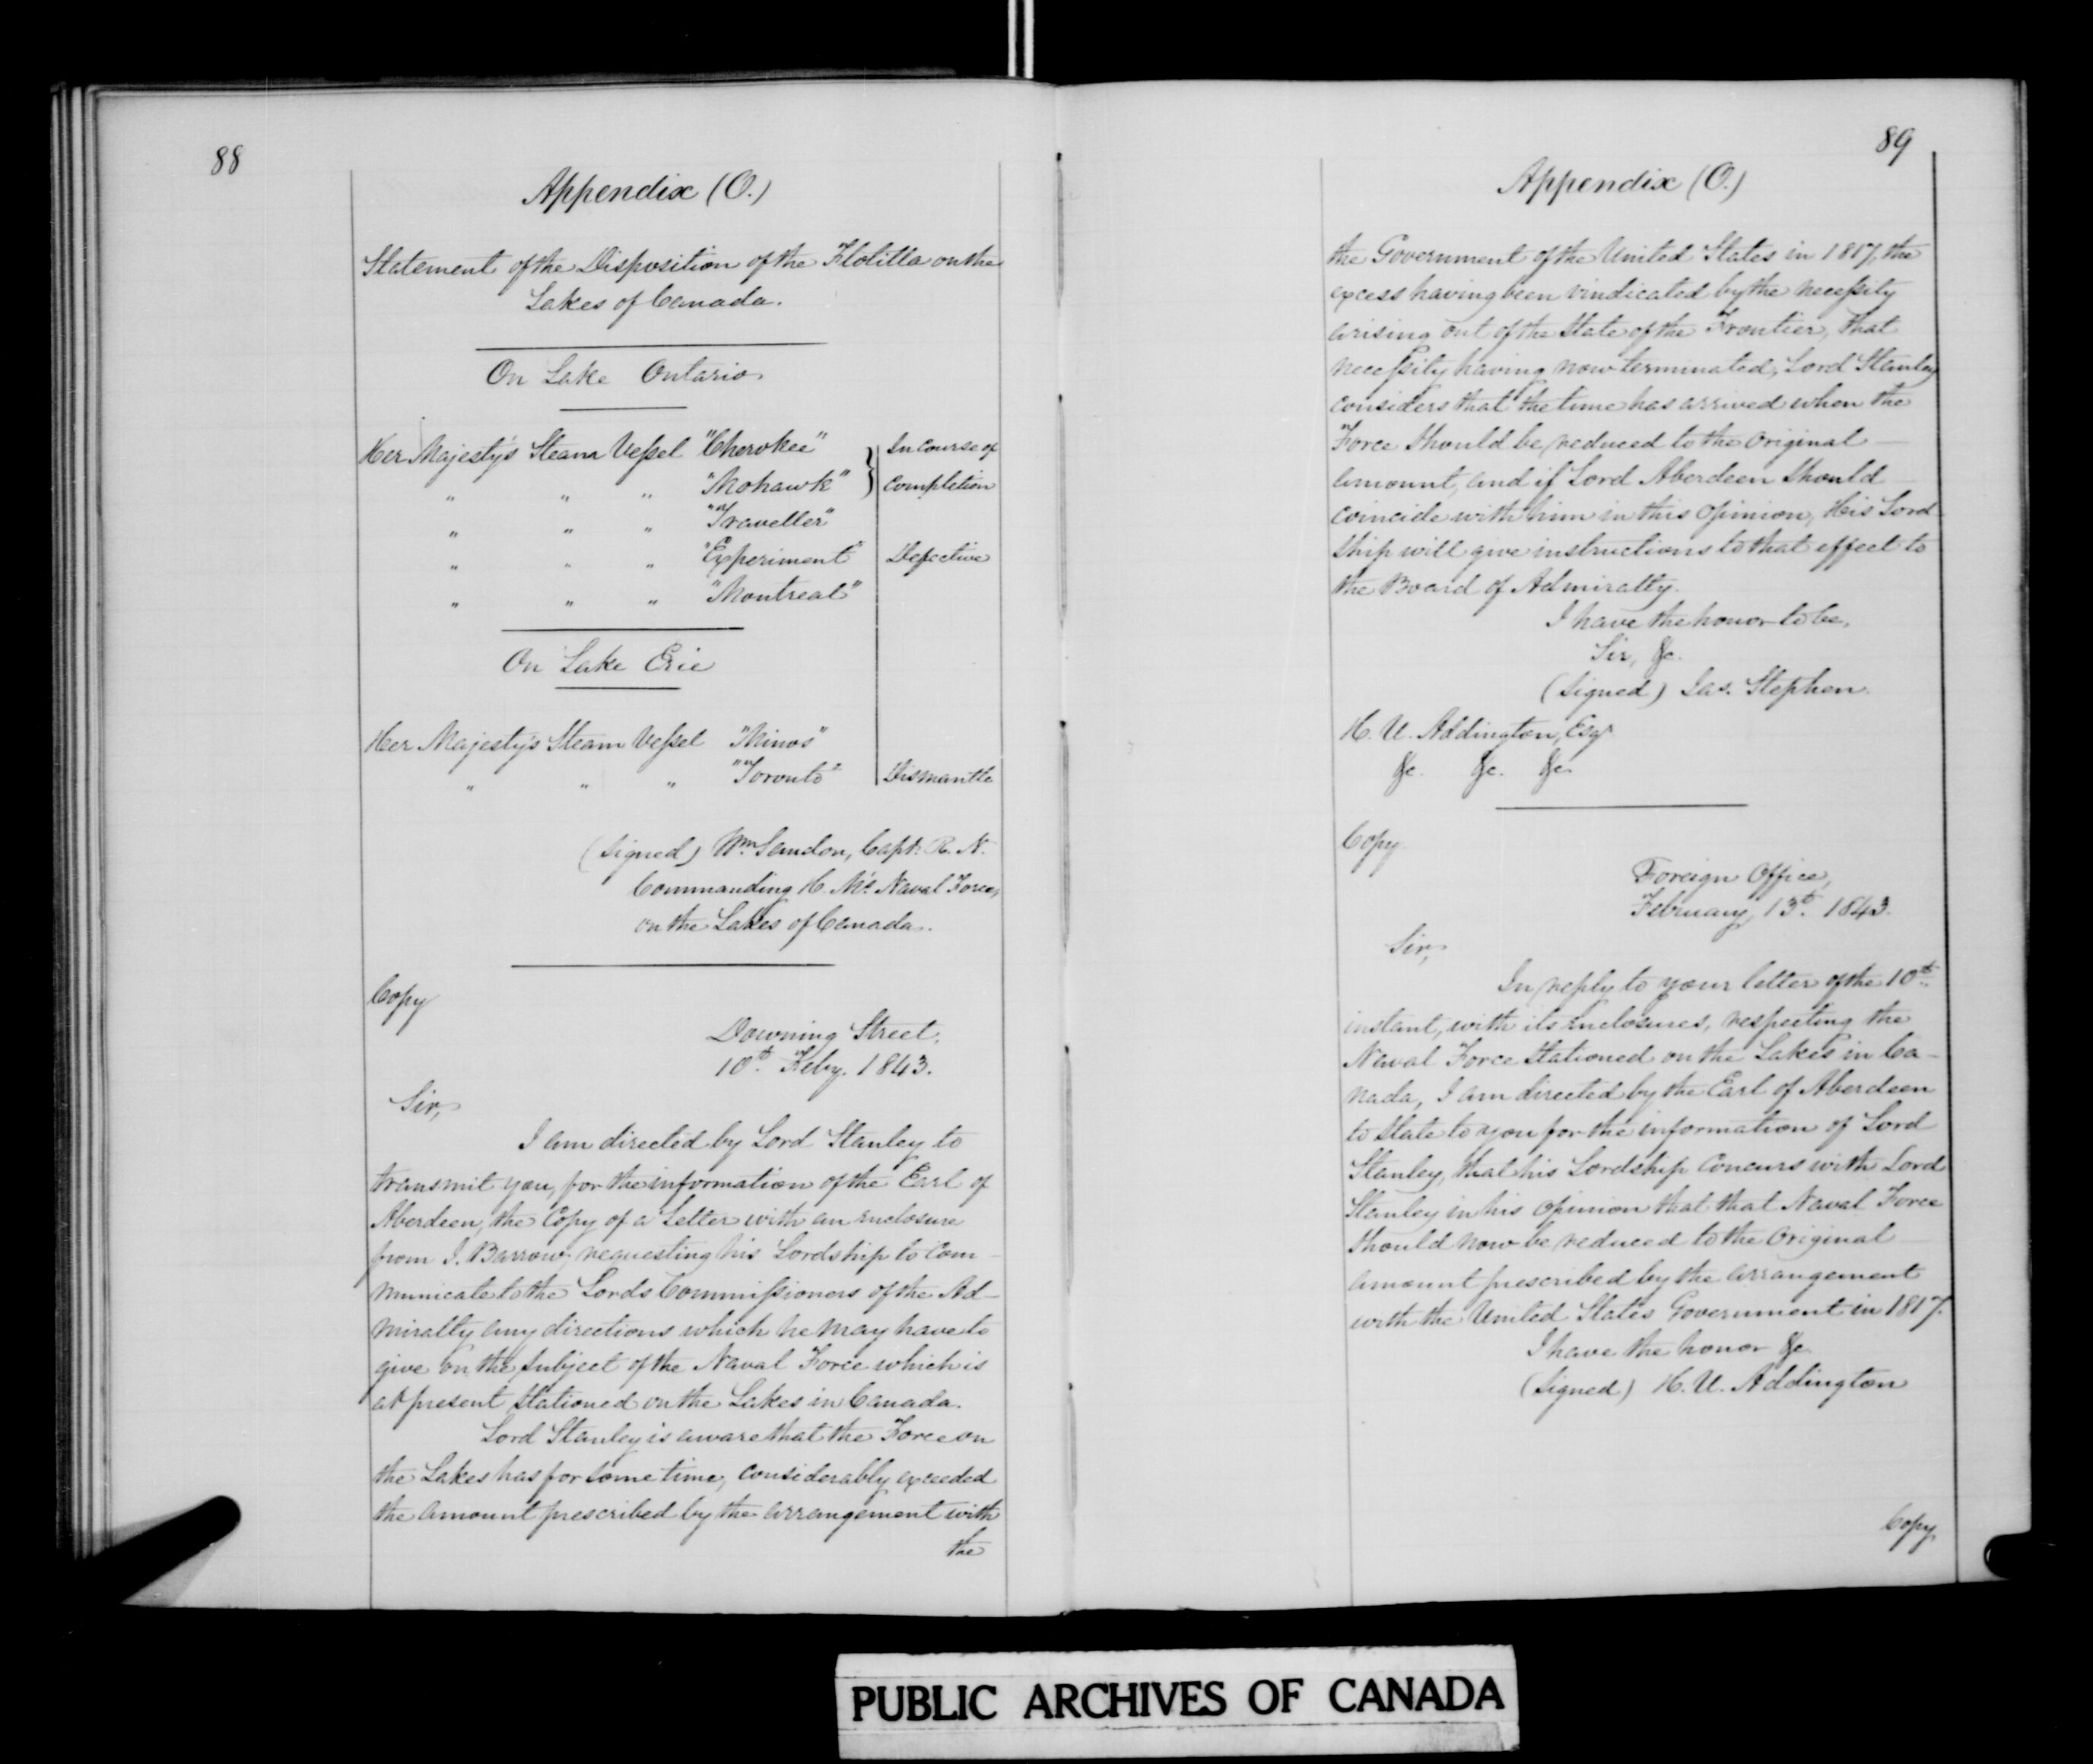 88
Appendix (O.)
Statement of the Disposition of the Flotilla on the
Lakes of Canada.
On Lake Ontario
Her Majesty's Steam Vessel "Cherokee" } In Course of
" " " "Mohawk" } Completion
" " " "Traveller"
" " " "Experiment" Defective
" " " "Montreal"
On Lake Erie
Her Majesty's Steam Vessel "Minos"
" " " "Toronto" Dismantle
(Signed) Wm. Sandon, Capt. R. N.
Commanding H. M's. Naval Force,
on the Lakes of Canada.
Copy
Downing Street.
10th. Feby. 1843.
Sir,
I am directed by Lord Stanley to
transmit you, for the information of the Earl of
Aberdeen, the Copy of a Letter with an Enclosure
from J. Barrow, requesting his Lordship to Com
municate to the Lords Commissioners of the Ad-
miralty any directions which he may have to
give on the subject of the Naval Force which is
at present stationed on the Lakes in Canada.
Lord Stanley is aware that the Force on
the Lakes has for some time, considerably exceeded
the amount prescribed by the arrangement with
the
89
Appendix (O.)
the Government of the United States in 1817, the
excess having been vindicated by the necessity
arising out of the State of the Frontier, that
necessity having now terminated, Lord Stanley
considers that the time has arrived when the
Force should be reduced to the Original
amount, and if Lord Aberdeen should
coincide with him in this opinion, His Lord
ship will give instructions to that effect to
the Board of Admiralty.
I have the honor to be,
Sir, &c.
(Signed) Jas. Stephen.
H. U. Addington, Esqr.
&c. &c. &c.
Copy.
Foreign Office,
February, 13th. 1843.
Sir,
In reply to your letter of the 10th.
instant, with its Enclosures, respecting the
Naval Force stationed on the Lakes in Ca-
nada, I am directed by the Earl of Aberdeen
to state to you for the information of Lord
Stanley, that his Lordship Concurs with Lord
Stanley in his opinion that that Naval Force
should now be reduced to the Original
amount prescribed by the arrangement
with the United States Government in 1817.
I have the honor &c
(Signed) H. U. Addington
Copy
PUBLIC ARCHIVES OF CANADA